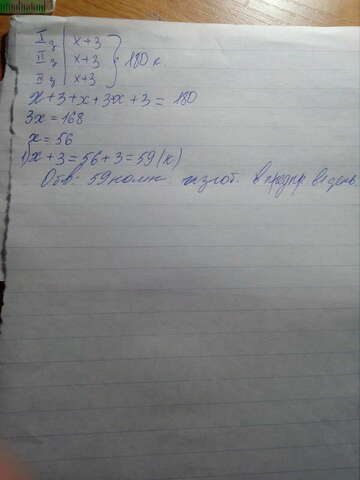 I д | x+3
II д | x+3 } 180 к
III д | x+3
x+3+x+3+x+3=180
3x=168
x=56
1) x+3=56+3=59(к)
Отв: 59 компл. изгот. в 1 день